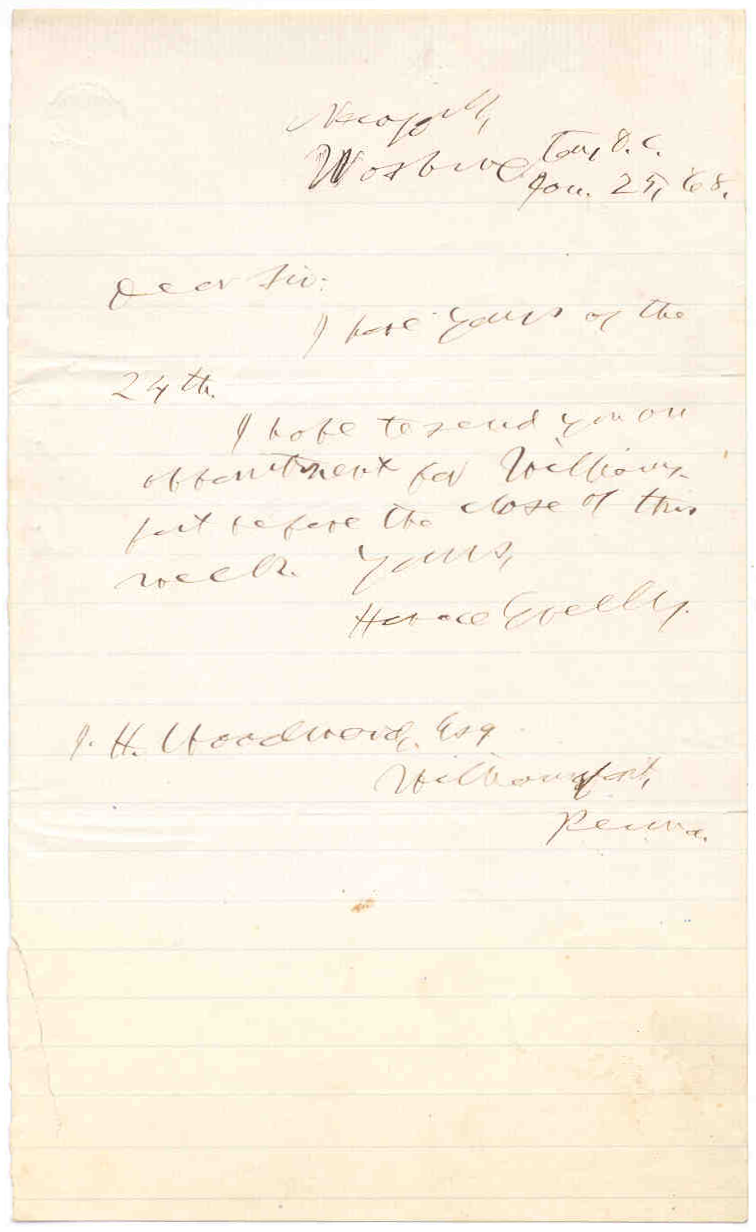 Washington, D.C.
Jan. 25, '68.
Dear Sir:
I have yours of the
24th.
I hope to send you an
appointment for Williams-
port before the close of this
week. Yours,
Horace Greeley.
J. H. Woodward, Esq
Williamsport,
Penna.